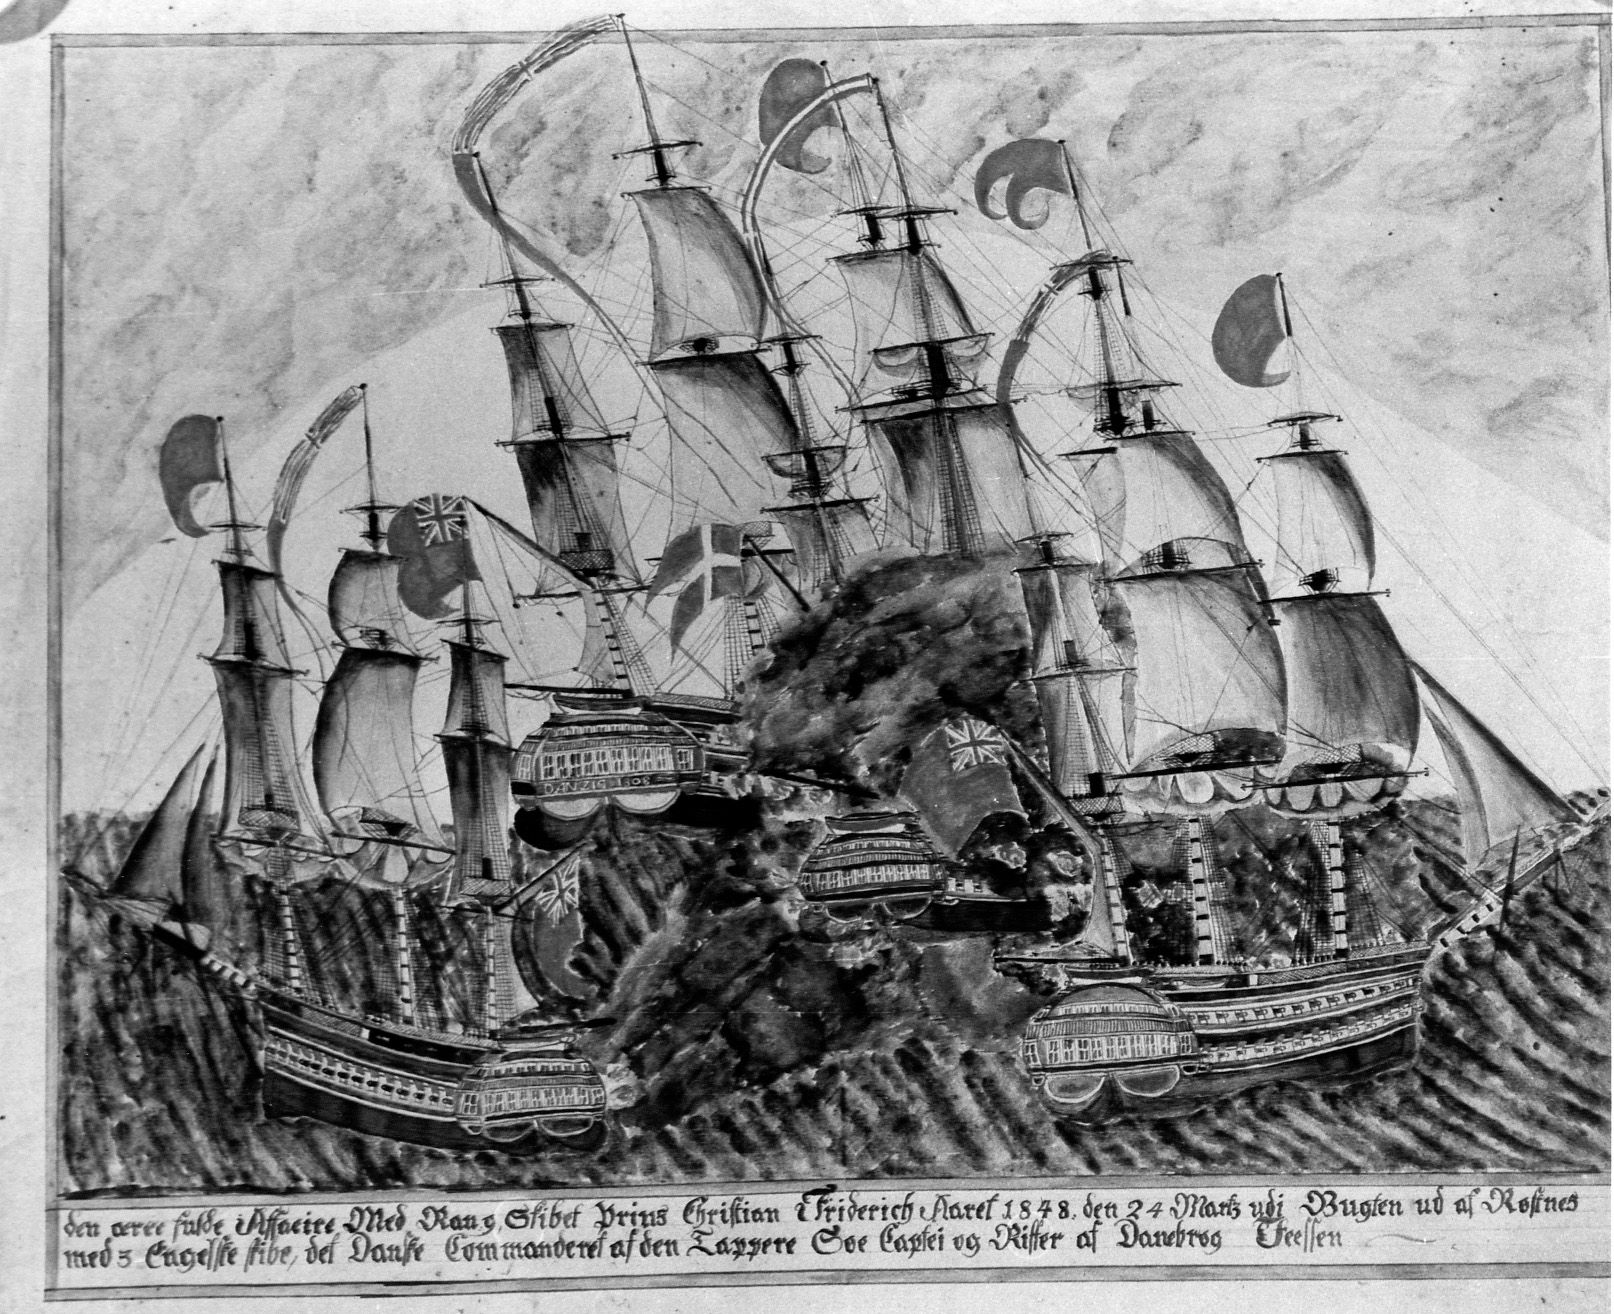 DANZIG 1808
den æree fulde Affaeire Med Rang Skibet Prins Christian Friderich Aaret 1848. den 24 Martz udi Bugten ud af Rosnes
med 3 Engelske skibe, det Danske Commanderet af den Tappere Søe Captei og Ritter af Danebrog Jeessen